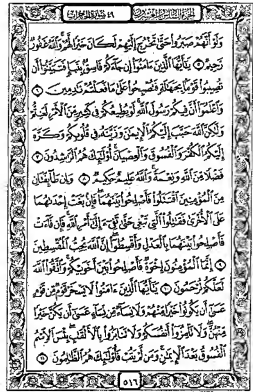 الجزء السادس والعشرون ٤٩ سورة الحجرات
وَلَوْ أَنَّهُمْ صَبَرُوا۟ حَتَّىٰ تَخْرُجَ إِلَيْهِمْ لَكَانَ خَيْرًا لَّهُمْ وَٱللَّهُ غَفُورٌ
رَّحِيمٌ ۝٥ يَـٰٓأَيُّهَا ٱلَّذِينَ ءَامَنُوٓا۟ إِن جَآءَكُمْ فَاسِقٌۢ بِنَبَإٍ فَتَبَيَّنُوٓا۟ أَن
تُصِيبُوا۟ قَوْمًۢا بِجَهَـٰلَةٍ فَتُصْبِحُوا۟ عَلَىٰ مَا فَعَلْتُمْ نَـٰدِمِينَ ۝٦
وَٱعْلَمُوٓا۟ أَنَّ فِيكُمْ رَسُولَ ٱللَّهِ لَوْ يُطِيعُكُمْ فِى كَثِيرٍ مِّنَ ٱلْأَمْرِ لَعَنِتُّمْ
وَلَـٰكِنَّ ٱللَّهَ حَبَّبَ إِلَيْكُمُ ٱلْإِيمَـٰنَ وَزَيَّنَهُۥ فِى قُلُوبِكُمْ وَكَرَّهَ
إِلَيْكُمُ ٱلْكُفْرَ وَٱلْفُسُوقَ وَٱلْعِصْيَانَ أُو۟لَـٰٓئِكَ هُمُ ٱلرَّٰشِدُونَ ۝٧
فَضْلًا مِّنَ ٱللَّهِ وَنِعْمَةً وَٱللَّهُ عَلِيمٌ حَكِيمٌ ۝٨ وَإِن طَآئِفَتَانِ
مِنَ ٱلْمُؤْمِنِينَ ٱقْتَتَلُوا۟ فَأَصْلِحُوا۟ بَيْنَهُمَا فَإِنۢ بَغَتْ إِحْدَىٰهُمَا
عَلَى ٱلْأُخْرَىٰ فَقَـٰتِلُوا۟ ٱلَّتِى تَبْغِى حَتَّىٰ تَفِىٓءَ إِلَىٰٓ أَمْرِ ٱللَّهِ فَإِن فَآءَتْ
فَأَصْلِحُوا۟ بَيْنَهُمَا بِٱلْعَدْلِ وَأَقْسِطُوٓا۟ إِنَّ ٱللَّهَ يُحِبُّ ٱلْمُقْسِطِينَ
۝٩ إِنَّمَا ٱلْمُؤْمِنُونَ إِخْوَةٌ فَأَصْلِحُوا۟ بَيْنَ أَخَوَيْكُمْ وَٱتَّقُوا۟ ٱللَّهَ
لَعَلَّكُمْ تُرْحَمُونَ ۝١٠ يَـٰٓأَيُّهَا ٱلَّذِينَ ءَامَنُوا۟ لَا يَسْخَرْ قَوْمٌ مِّن قَوْمٍ
عَسَىٰٓ أَن يَكُونُوا۟ خَيْرًا مِّنْهُمْ وَلَا نِسَآءٌ مِّن نِّسَآءٍ عَسَىٰٓ أَن يَكُنَّ خَيْرًا
مِّنْهُنَّ وَلَا تَلْمِزُوٓا۟ أَنفُسَكُمْ وَلَا تَنَابَزُوا۟ بِٱلْأَلْقَـٰبِ بِئْسَ ٱلِٱسْمُ
ٱلْفُسُوقُ بَعْدَ ٱلْإِيمَـٰنِ وَمَن لَّمْ يَتُبْ فَأُو۟لَـٰٓئِكَ هُمُ ٱلظَّـٰلِمُونَ ۝١١
٥١٦